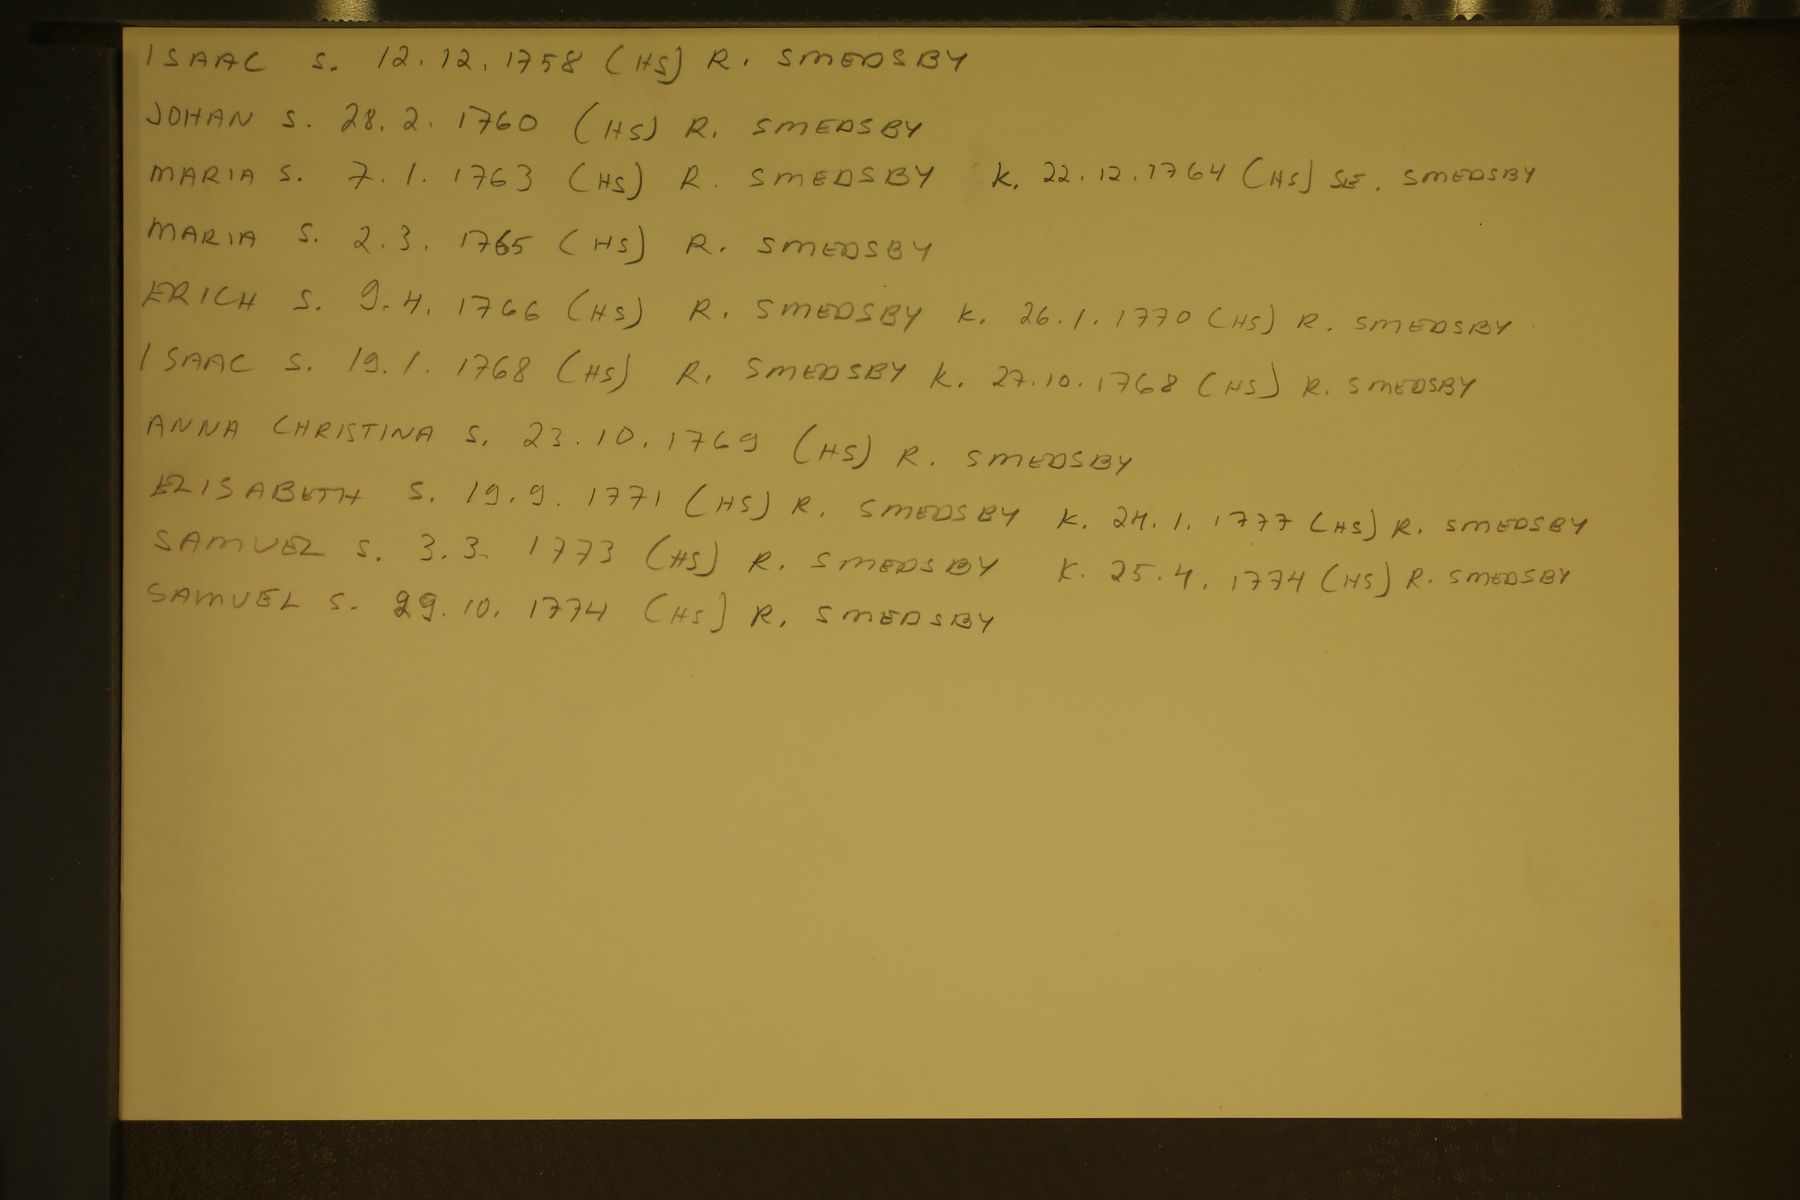 ISAAC S. 12.12.1758 (HS) R. SMEDSBY
JOHAN S. 28.2.1760 (HS) R. SMEDSBY
MARIA S. 7.1.1763 (HS) R. SMEDSBY K. 22.12.1764 (HS) SE. SMEDSBY
MARIA S. 2.3.1765 (HS) R. SMEDSBY
ERICH S. 9.4.1766 (HS) R. SMEDSBY K. 26.1.1770 (HS) R. SMEDSBY
ISAAC S. 19.1.1768 (HS) R. SMEDSBY K. 27.10.1768 (HS) R. SMEDSBY
ANNA CHRISTINA S. 23.10.1769 (HS) R. SMEDSBY
ELISABETH S. 19.9.1771 (HS) R. SMEDSBY K. 24.1.1777 (HS) R. SMEDSBY
SAMUEL S. 3.3.1773 (HS) R. SMEDSBY K. 25.4.1774 (HS) R. SMEDSBY
SAMUEL S. 29.10.1774 (HS) R. SMEDSBY